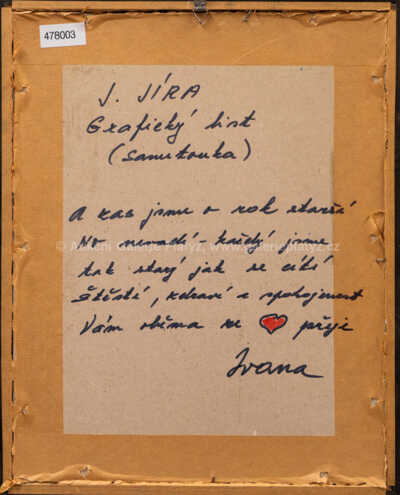 478003
J. JÍRA
Grafický list
(samutouka)
A zas jsme o rok starší
No nevadí - každý jsme
tak starý jak se cítí
Štěstí, zdraví a spokojenost
Vám oběma ze přeje
Ivana